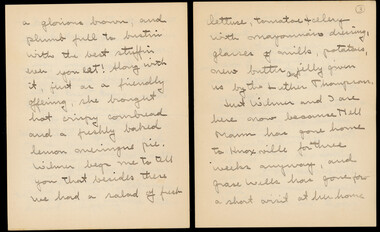 a glorious brown, and
plumb full to bustin'
with the best stuffin'
ever you et! Along with
it, just as a friendly
offering, she brought
hot crispy cornbread
and a freshly baked
lemon meringue pie.
Wilmer begs me to tell
you that besides these
we had a salad of fresh
3
lettuce, tomatoes & celery
with mayonnaise dressing,
glasses of milk, potatoes,
and butter & jelly given
us by the Luther Thompsons.
Just Wilmer and I are
here now because Nell
Mann has gone home
to Knoxville for three
weeks anyway, and
Grace Wells has gone for
a short visit at her home